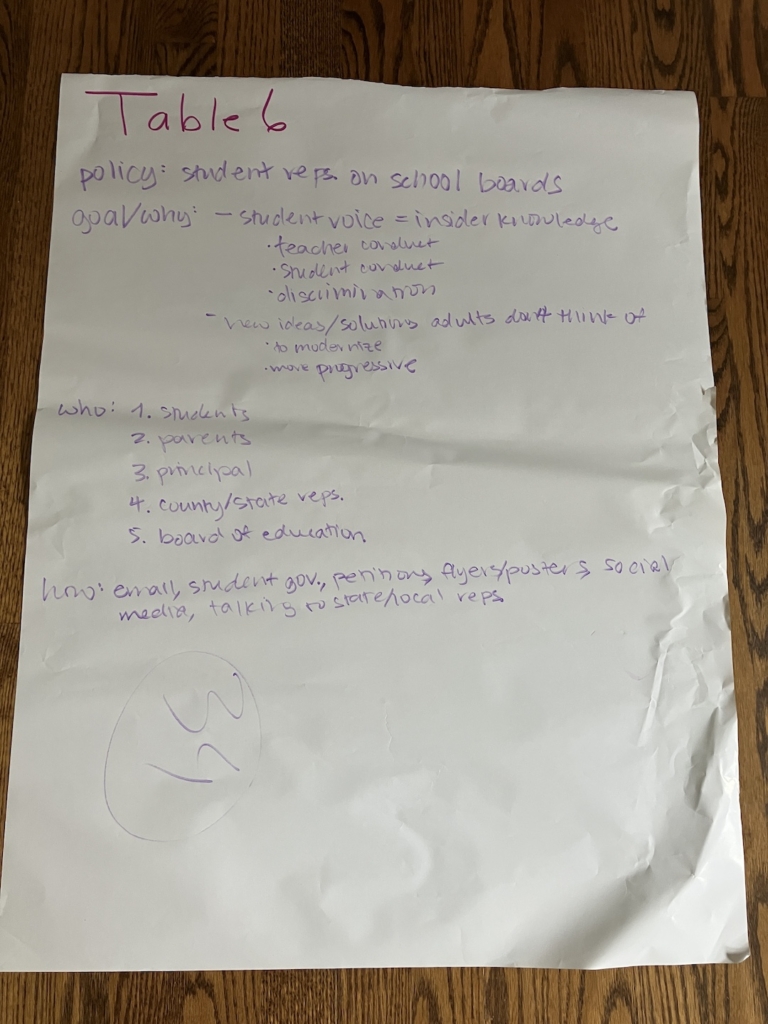 Table 6
policy: student reps. on school boards
goal/why: - student voice = insider knowledge
· teacher conduct
· student conduct
· discrimination
- new ideas/solutions adults don't think of
· to modernize
· more progressive
who: 1. students
2. parents
3. principal
4. county/state reps.
5. board of education
how: email, student gov., petitions, flyers/posters, social
media, talking to state/local reps.
34